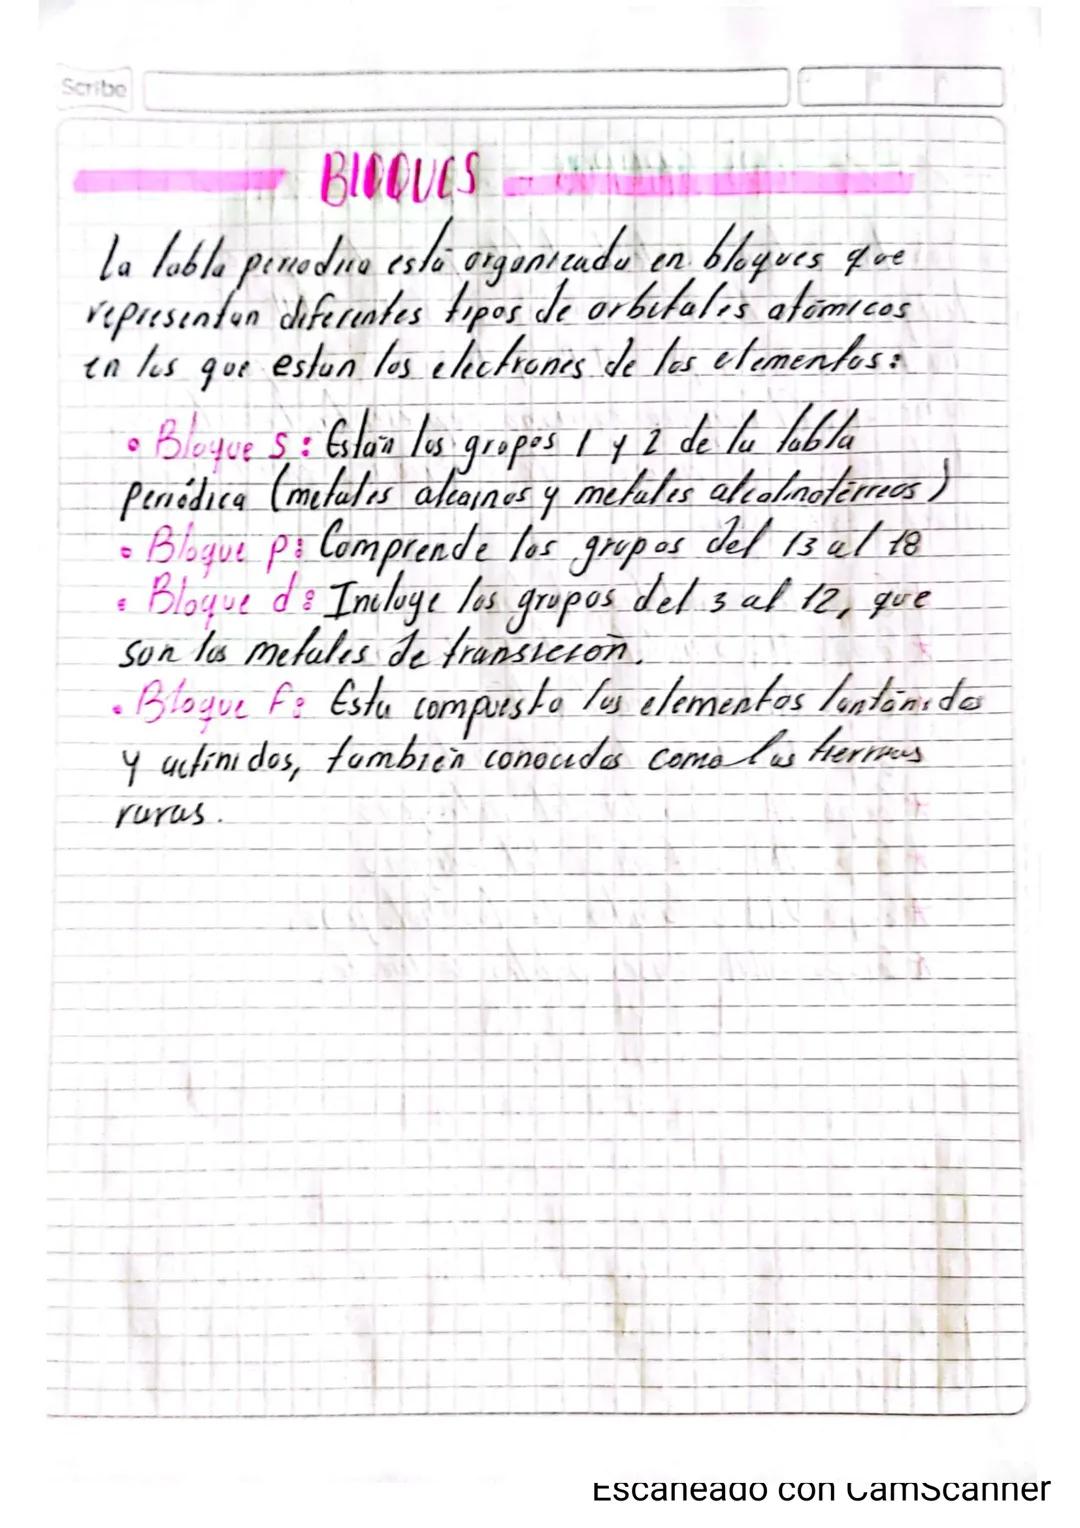 Scribe
BLOQUES
La tabla periodica está organizada en bloques que
representan diferentes tipos de orbitales atómicos
en los que estan los electrones de los elementos:
• Bloque s: Están los grupos 1 y 2 de la tabla
Periódica (metales alcalinos y metales alcalinotérreos)
• Bloque p: Comprende los grupos del 13 al 18
• Bloque d: Incluye los grupos del 3 al 12, que
son los metales de transición.
• Bloque f: Esta compuesto los elementos lantánidos
y actinidos, también conocidos como las tierras
raras.
Escaneado con CamScanner